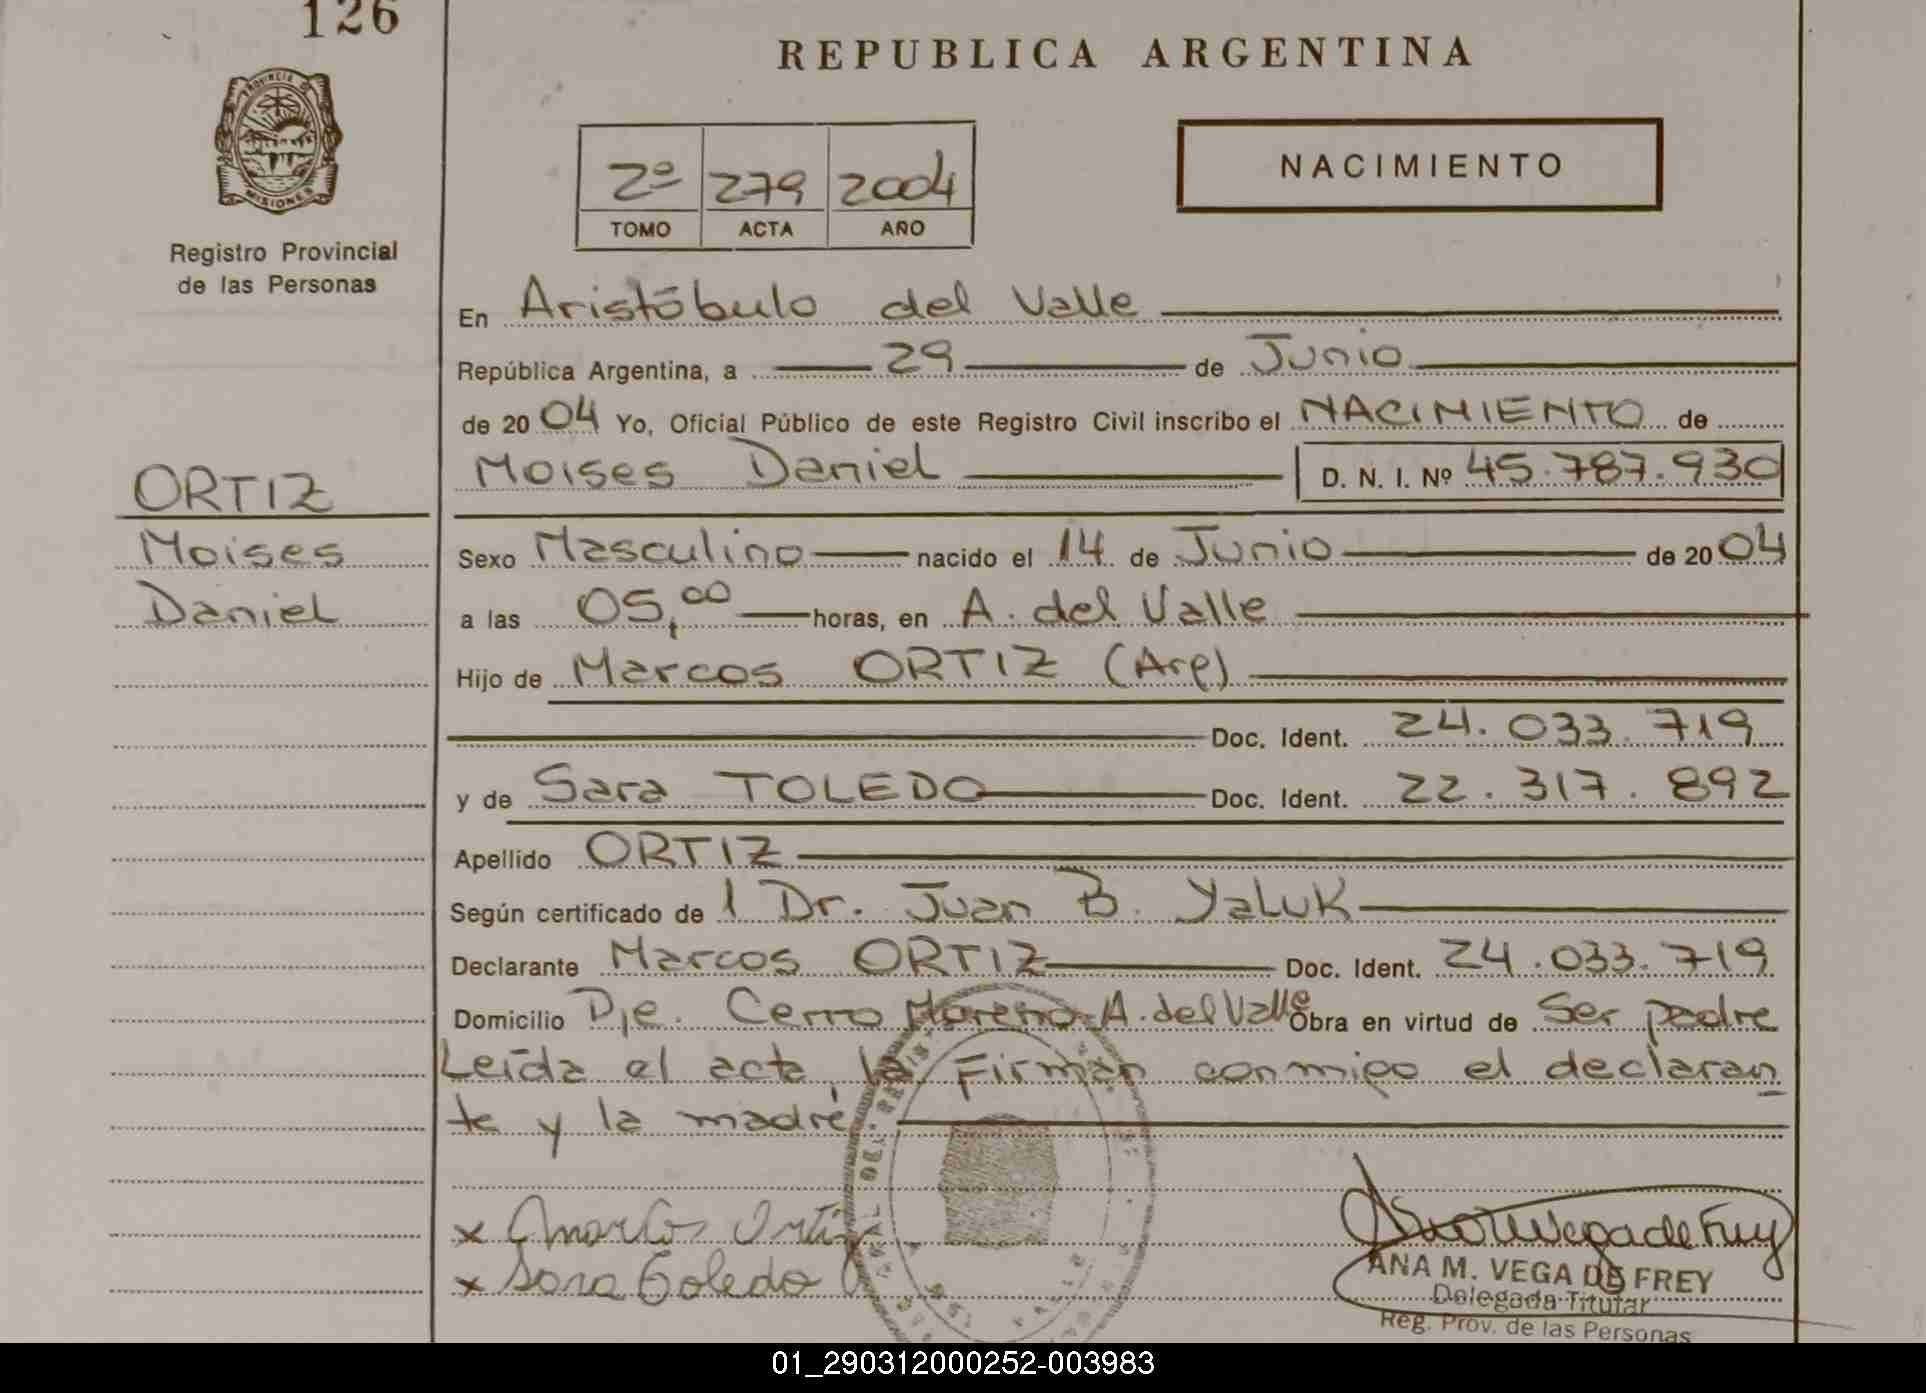 126
REPUBLICA ARGENTINA
PROVINCIA DE
MISIONES
Registro Provincial
de las Personas
2º 279 2004
TOMO ACTA AÑO
NACIMIENTO
En Aristóbulo del Valle
República Argentina, a 29 de Junio
de 2004 Yo, Oficial Público de este Registro Civil inscribo el NACIMIENTO de
Moises Daniel D. N. I. Nº 45.787.930
ORTIZ
Moises
Daniel
Sexo Masculino nacido el 14 de Junio de 2004
a las 05,00 horas, en A. del Valle
Hijo de Marcos ORTIZ (Arg)
Doc. Ident. 24.033.719
y de Sara TOLEDO Doc. Ident. 22.317.892
Apellido ORTIZ
Según certificado de l Dr. Juan B. Yaluk
Declarante Marcos ORTIZ Doc. Ident. 24.033.719
Domicilio Pje. Cerro Moreno-A. del Valle Obra en virtud de Ser padre
Leída el acta, la Firman conmigo el declaran
te y la madre
x Marcos Ortiz
x Sara Toledo
Ana M Vega de Frey
ANA M. VEGA DE FREY
Delegada Titular
Reg. Prov. de las Personas
01_290312000252-003983